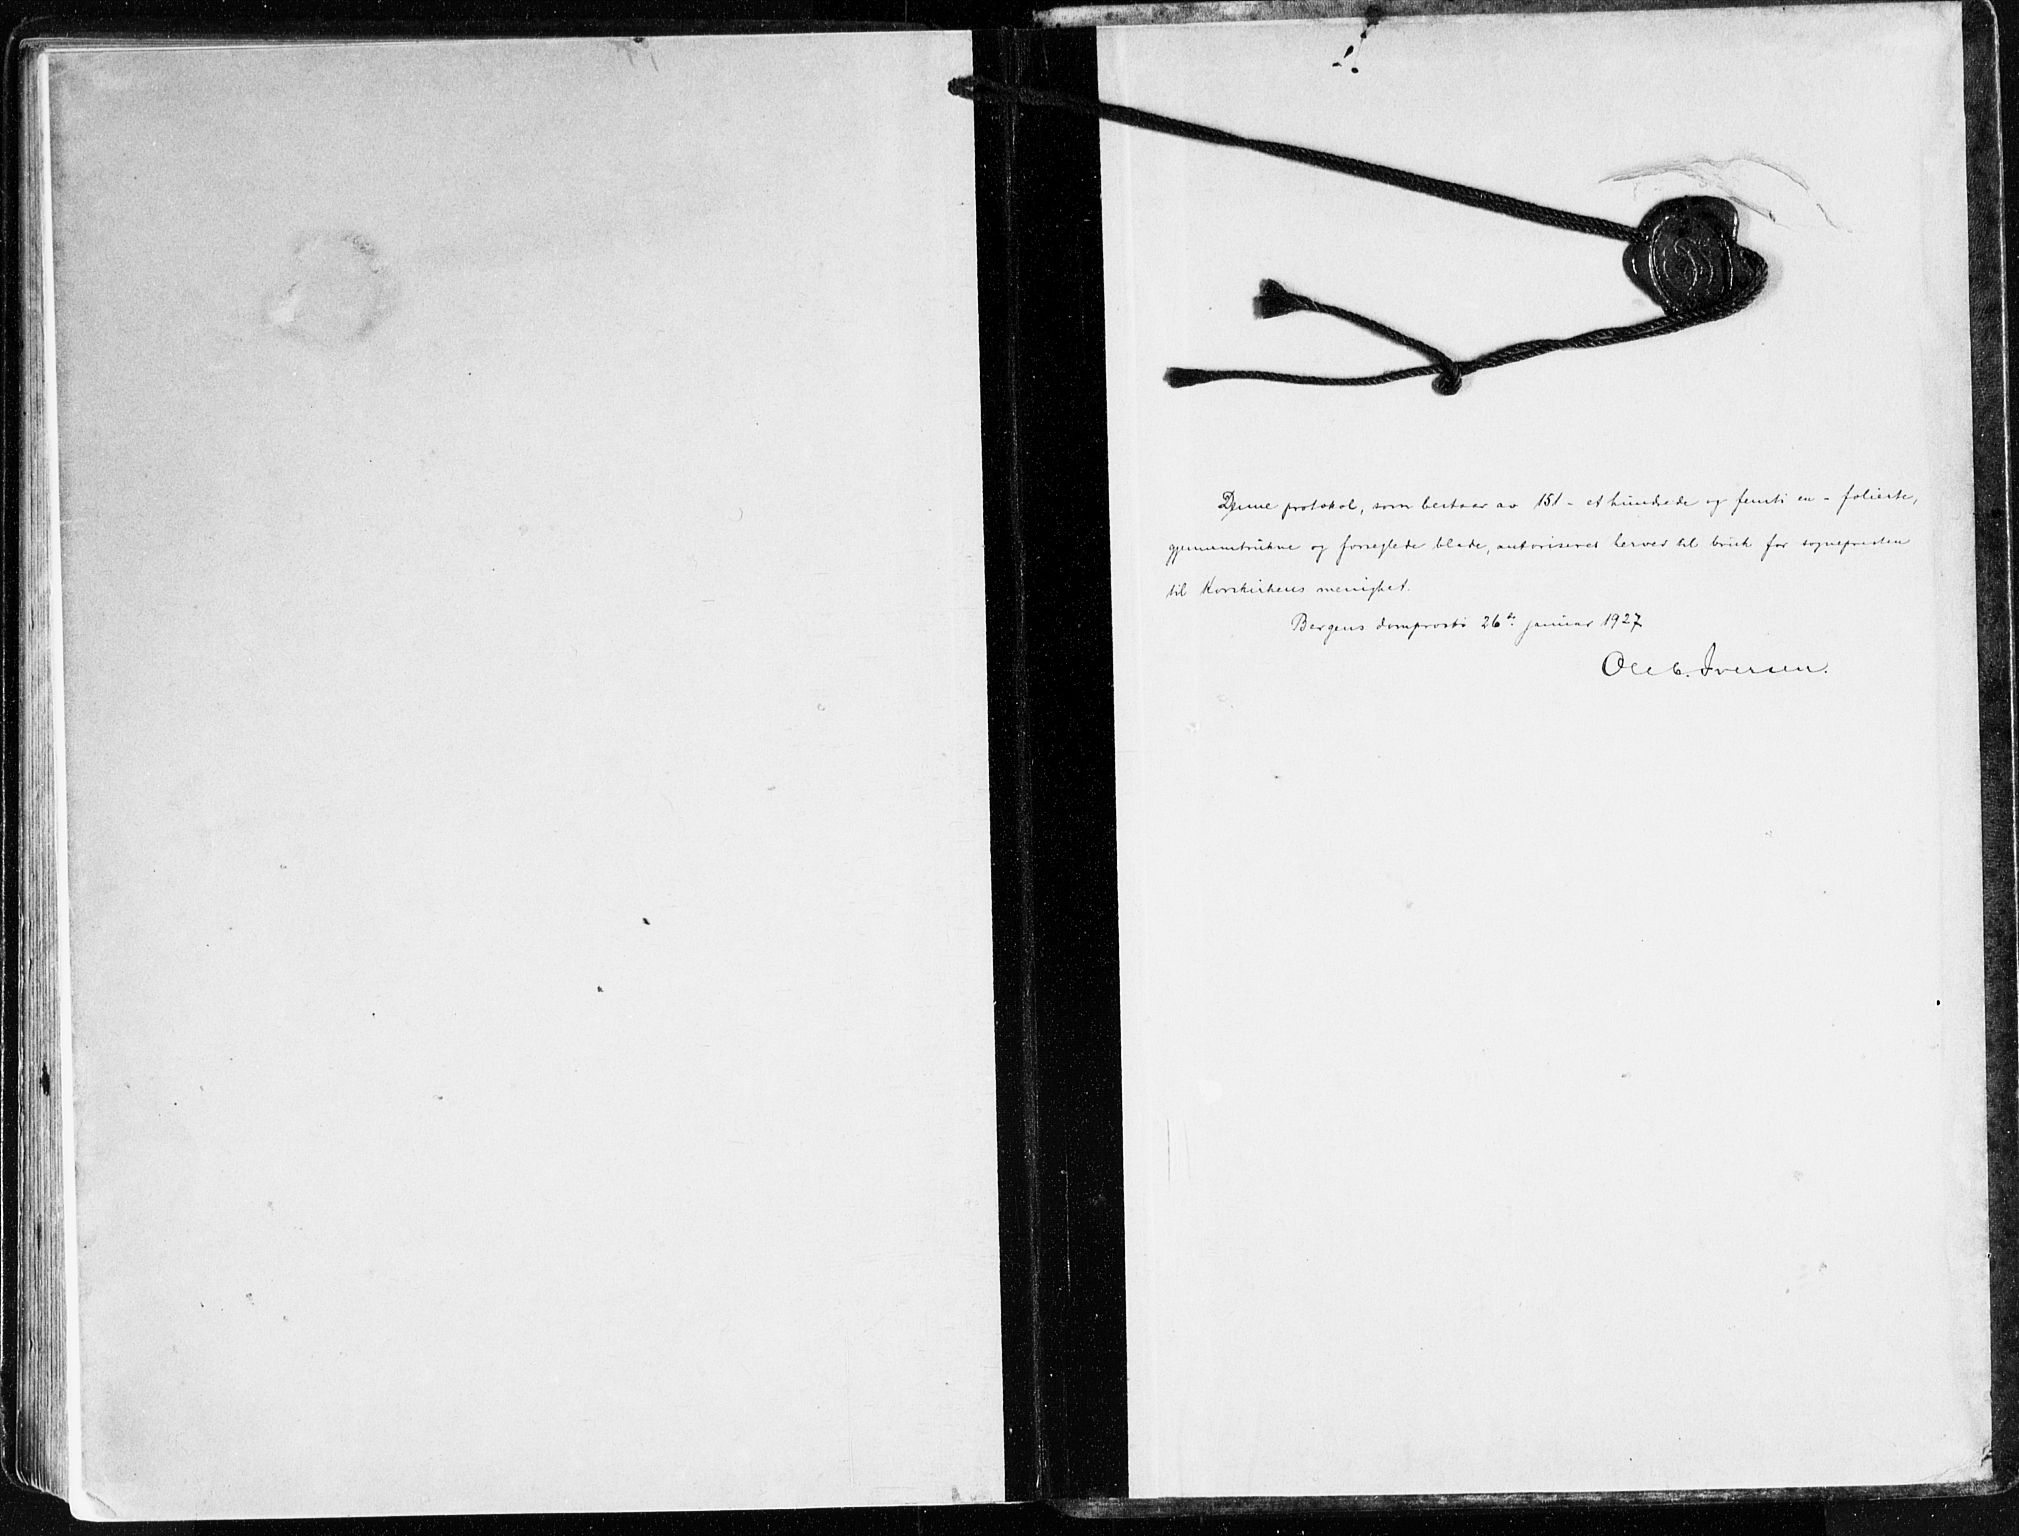 Denne protokol, som bestaar av 151 - et hundrede og femti en - folierte,
gjennemtrukne og forseglede blade, autoriseres herved til bruk for sognepresten
til Korskirkens menighet.
Bergens domprosti 26de januar 1927
Ole C. Iversen.